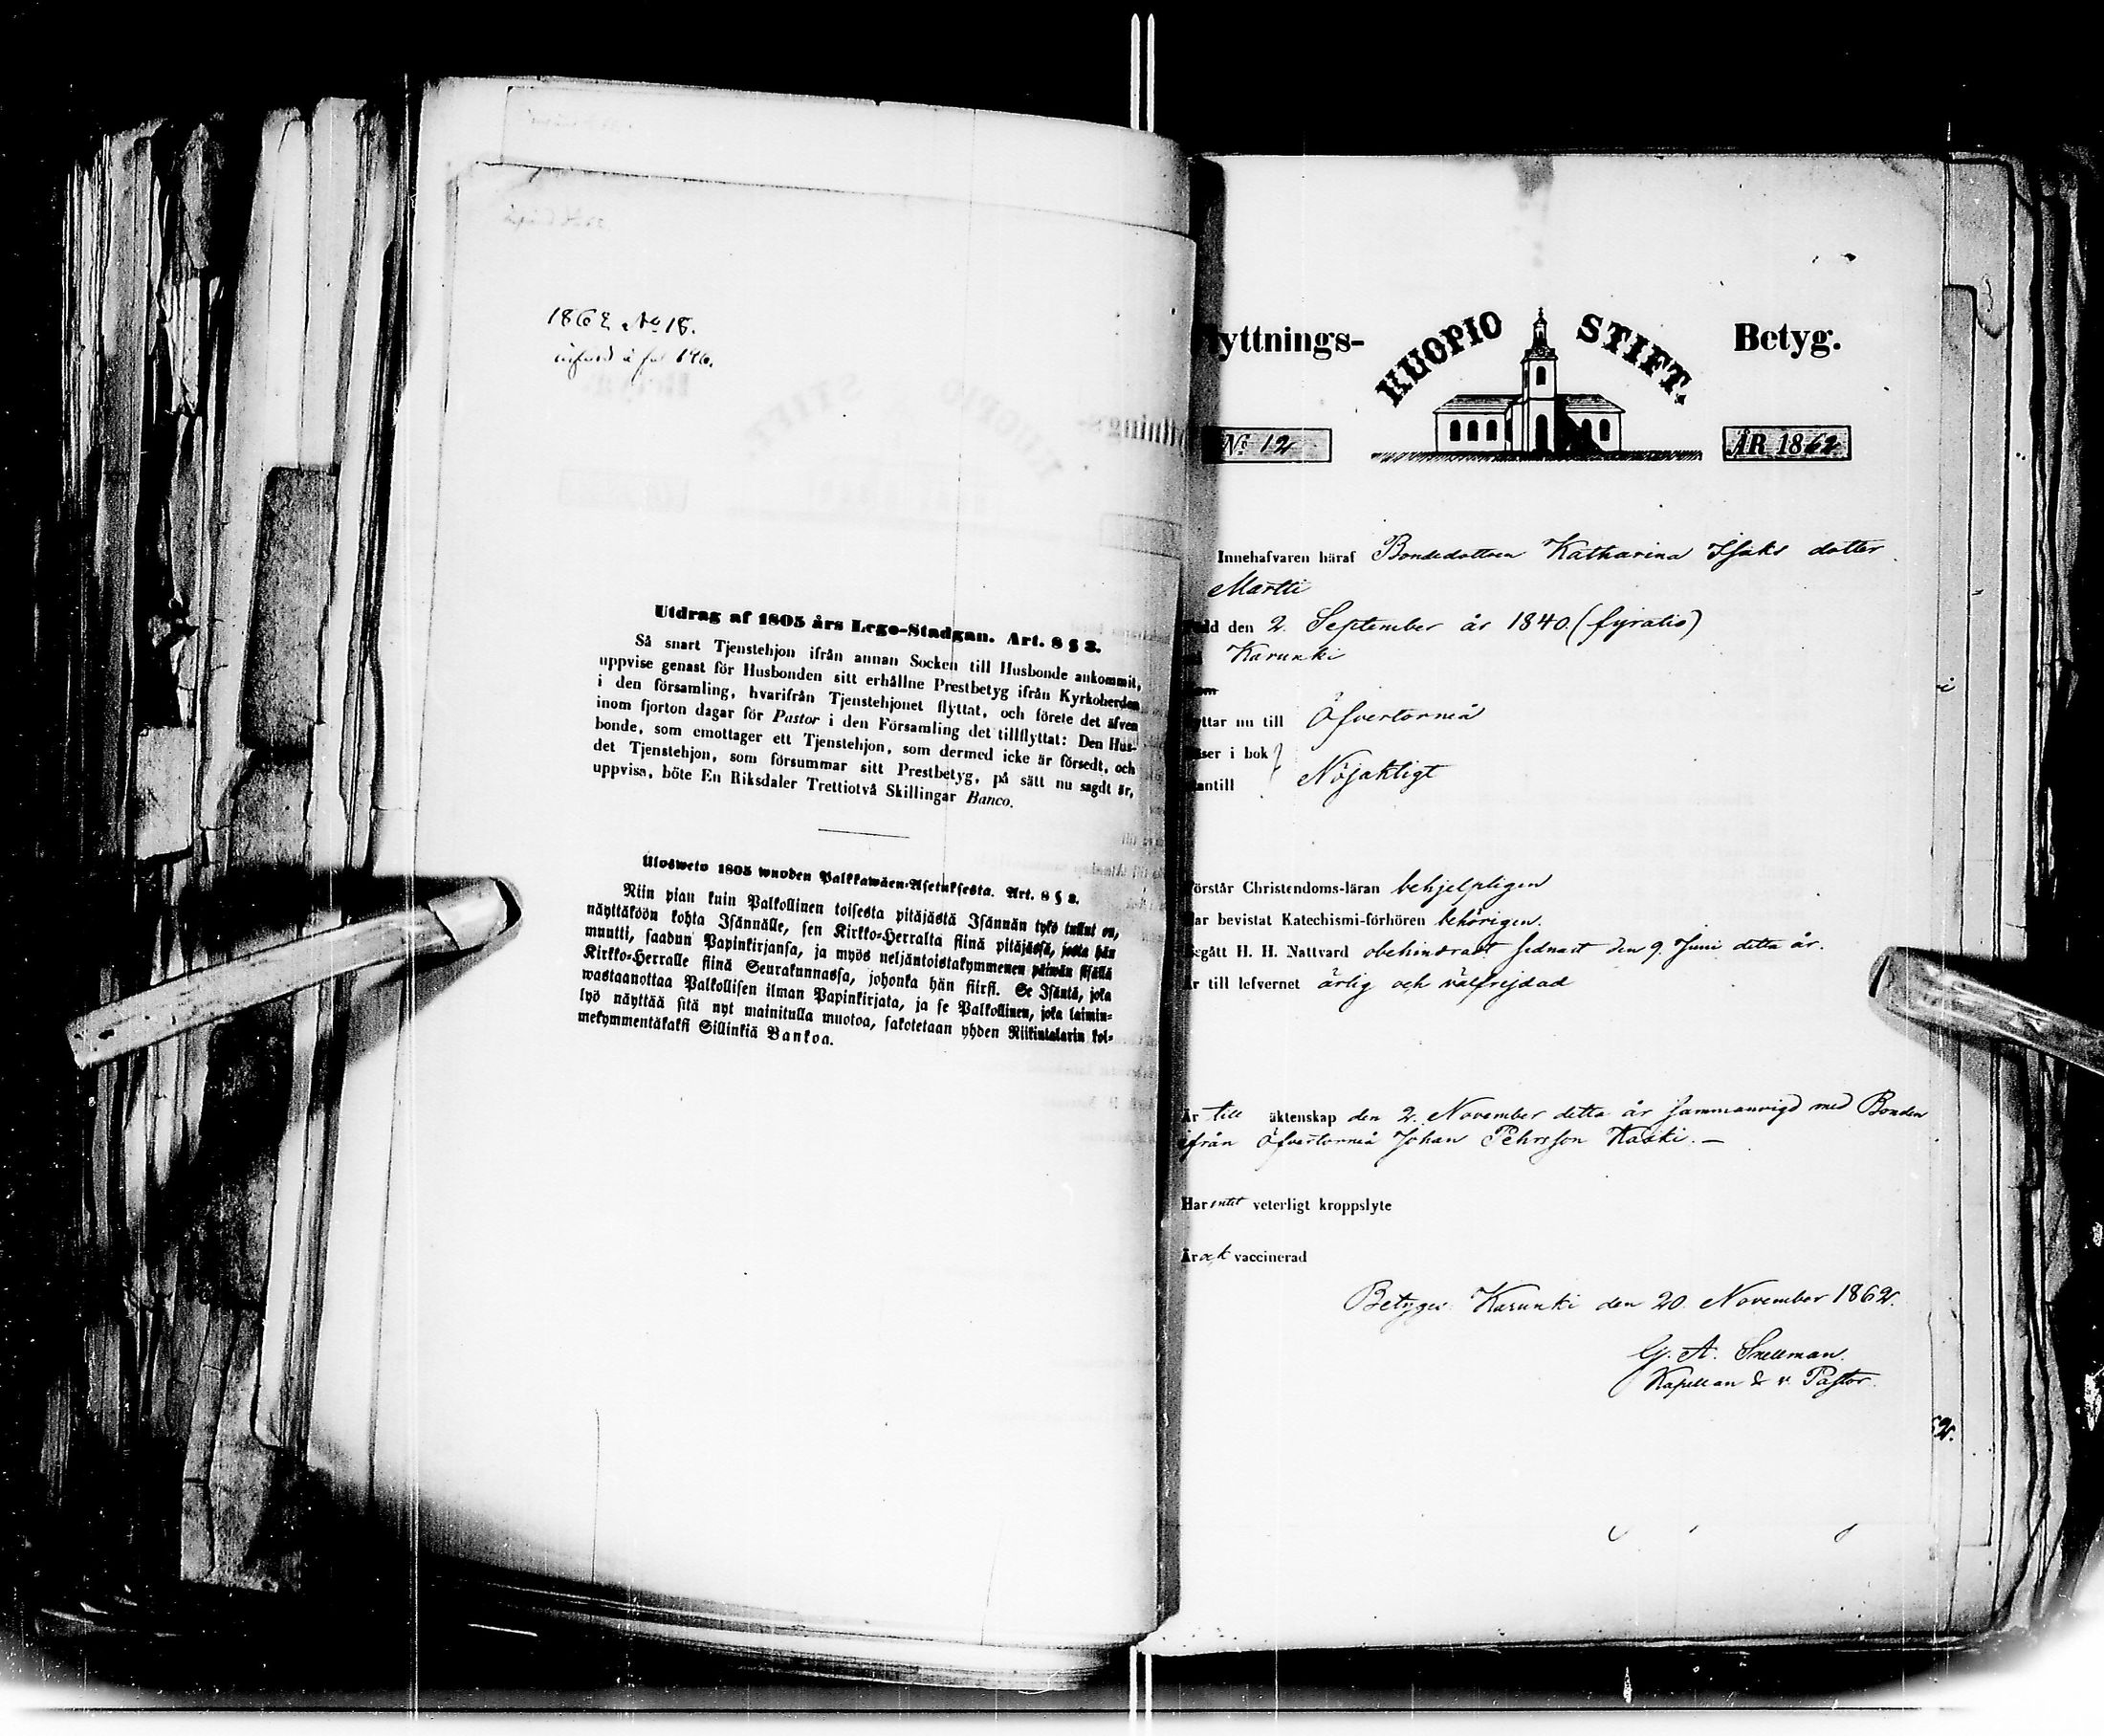 1862 No 18.
införd å fol 196.
Utdrag af 1805 års Lego-Stadgan. Art. 8 § 2.
Så snart Tjenstehjon ifrån annan Socken till Husbonde ankommit,
uppvise genast för Husbonden sitt erhållne Prestbetyg ifrån Kyrkoherden
i den församling, hvarifrån Tjenstehjonet flyttat, och förete det äfven
inom fjorton dagar för Pastor i den Församling det tillflyttat: Den Hus-
bonde, som emottager ett Tjenstehjon, som dermed icke är försedt, och
det Tjenstehjon, som försummar sitt Prestbetyg, på sätt nu sagdt är,
uppvisa, böte En Riksdaler Trettiotvå Skillingar Banco.
Ulosweto 1805 wuoden Palkkawäen-Asetuksesta. Art. 8 § 2.
Niin pian kuin Palkollinen toisesta pitäjästä Isännän tykö tullut on,
näyttäköön kohta Isännälle, sen Kirkko-Herralta siinä pitäjässä, josta hän
muutti, saadun Papinkirjansa, ja myös neljäntoistakymmenen päiwän sisällä
Kirkko-Herralle siinä Seurakunnassa, johonka hän siirsi. Se Isäntä, joka
wastaanottaa Palkollisen ilman Papinkirjata, ja se Palkollinen, joka laimin-
lyö näyttää sitä nyt mainitulla muotoa, sakotetaan yhden Riikintalarin kol-
mekymmentäkaksi Sillinkiä Bankoa.
lyttnings- KUOPIO STIFT. Betyg.
No 12 ÅR 1862
Innehafvaren häraf Bondedottren Katharina Isaks dotter
Martti
född den 2 September år 1840 (fyratio)
i Karunki
som
yttar nu till Öfvertorneå
äser i bok
antill Nöjaktigt
örstår Christendoms-läran behjelpligen
ar bevistat Katechismi-förhören behörigen.
egått H. H. Nattvard obehindradt sednast den 9. Juni detta år.
r till lefvernet ärlig och välfrejdad
Är till äktenskap den 2. November detta år sammanvigd med Bonden
ifrån Öfvertorneå Johan Pehrsson Kaaki. —
Har intet veterligt kroppslyte
Är ock vaccinerad
Betygar Karunki den 20. November 1862.
G. A. Snellman.
Kapellan & v. Pastor.